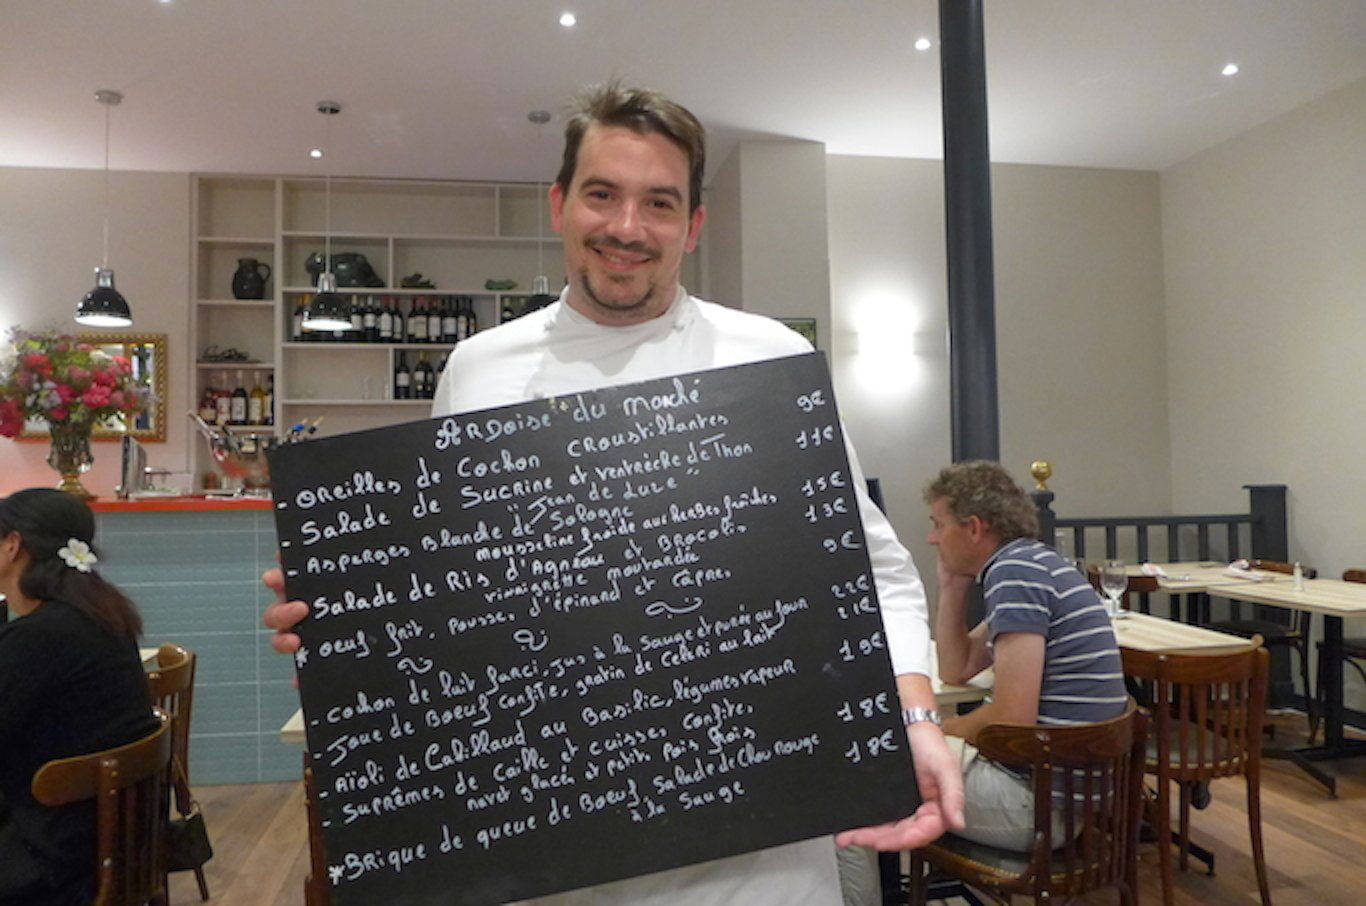 ARDoise du Marché
- OReilles de Cochon CRoustillantes 9€
- Salade de SucRine et ventrèche de Thon 11€
"Jean de Luze"
- Asperges Blanche de Sologne 15€
mousseline froide aux herbes fraîches
- Salade de Ris d'Agneau et BRocolis 13€
vinaigrette moutardée
* oeuf frit, pousses d'épinard et câpres 9€
- Cochon de lait farci, jus à la Sauge et purée au four 22€
- Joue de Boeuf confite, gratin de Celeri au lait 21€
- Aïoli de Cabillaud au Basilic, légumes vapeur 19€
- Suprêmes de Caille et cuisses confites, 18€
navet glacés et petits pois frais
* BRique de queue de Boeuf Salade de Chou Rouge 18€
à la Sauge